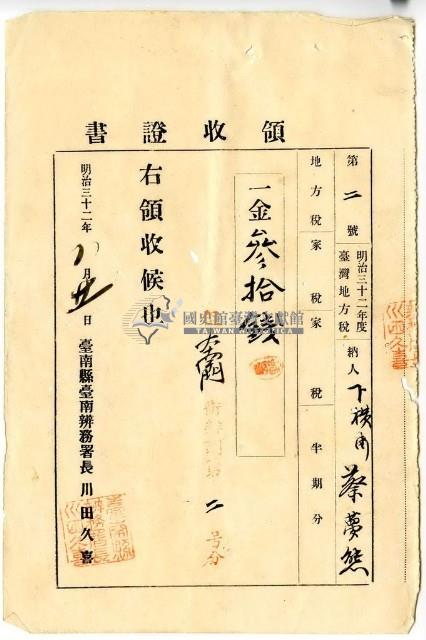 領收證書
第二號
明治三十二年度
臺灣地方稅
納人 下橫角 蔡夢熊
地方稅家稅家稅半期分
一金參拾錢
二号分
右領收候也
明治三十二年八月 日
臺南縣臺南辨務署長 川田久喜
國史館臺灣文獻館
TAIWAN HISTORICA